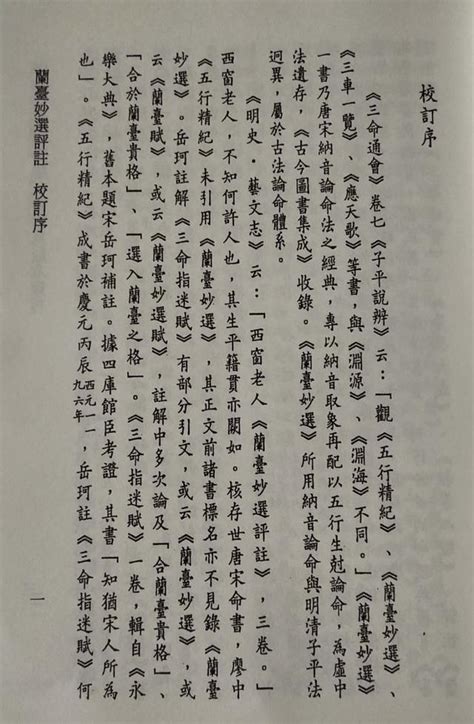 校訂序
《三命通會》卷七《子平說辨》云:「觀《五行精紀》、《蘭臺妙選》、
《三車一覽》、《應天歌》等書,與《淵源》、《淵海》不同。」《蘭臺妙選》
一書乃唐宋納音論命法之經典,專以納音取象再配以五行生尅論命,為虛中
法遺存,《古今圖書集成》收錄。《蘭臺妙選》所用納音論命與明清子平法
迥異,屬於古法論命體系。
《明史·藝文志》云:「西窗老人《蘭臺妙選評註》,三卷。」
西窗老人,不知何許人也,其生平籍貫亦闕如。核存世唐宋命書,廖中
《五行精紀》未引用《蘭臺妙選》,其正文前諸書標名亦不見錄《蘭臺
妙選》。岳珂註解《三命指迷賦》有部分引文,或云《蘭臺妙選》,或
云《蘭臺賦》,或云《蘭臺妙選賦》,註解中多次論及「合蘭臺貴格」、
「合於蘭臺貴格」、「選入蘭臺之格」。《三命指迷賦》一卷,輯自《永
樂大典》,舊本題宋岳珂補註。據四庫館臣考證,其書「知猶宋人所為
也」。《五行精紀》成書於慶元丙辰西元一一九六年,岳珂註《三命指迷賦》何
蘭臺妙選評註 校訂序 一